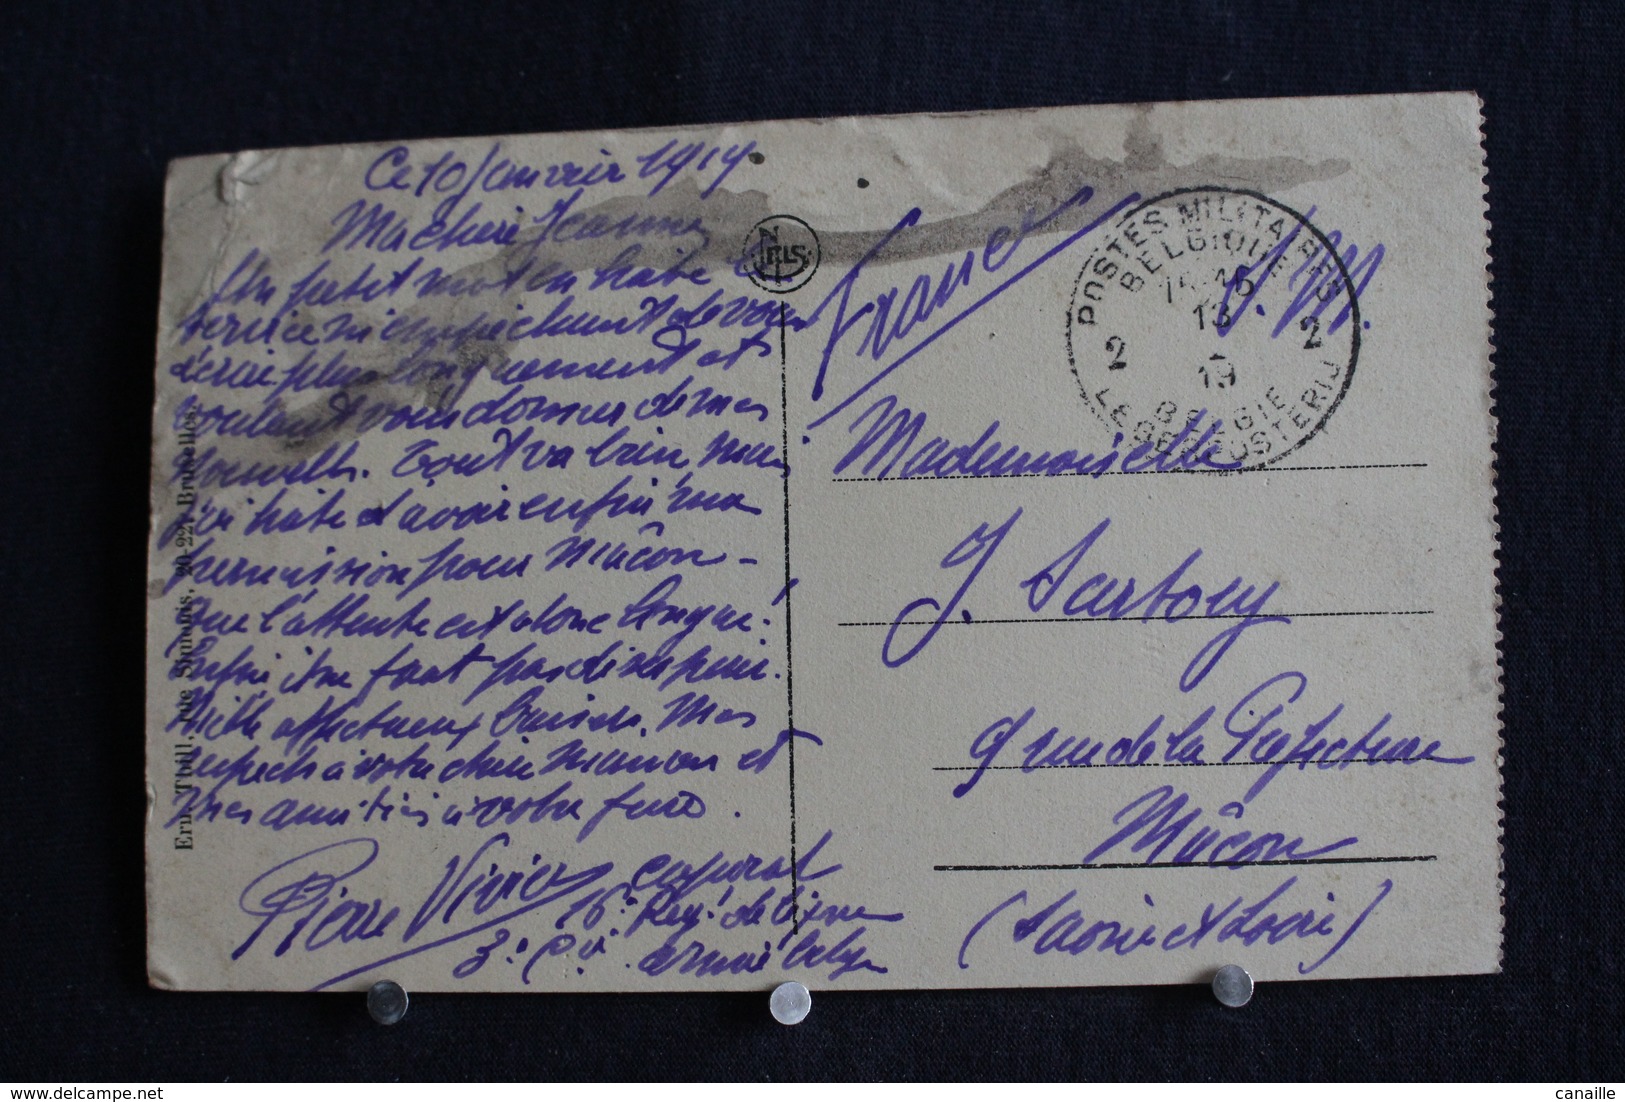 Ce 10 Janvier 1919
Ma chère Jeanne
Un petit mot en hâte le
service m'empêchant de vous
écrire plus longuement et
voulant vous donner de mes
nouvelles. Tout va bien, mais
j'ai hâte d'avoir enfin ma
permission pour Mâcon -
Que l'attente est donc longue!
Enfin il ne faut pas désespérer.
Mille affectueux baisers. Mes
respects à votre chère Maman et
mes amitiés à votre frère.
Pierre Vivier caporal
16e Regt de ligne
3e Cie armée belge
Ern. Thill, rue Simonis, 20-22, Bruxelles.
NELS
France
S.M.
POSTES MILITAIRES
BELGIQUE
13
19
2 2
BELGIE
LEGERPOSTERIJ
Mademoiselle
J. Sartory
9 rue de la Préfecture
Mâcon
(Saône et Loire)
canaille